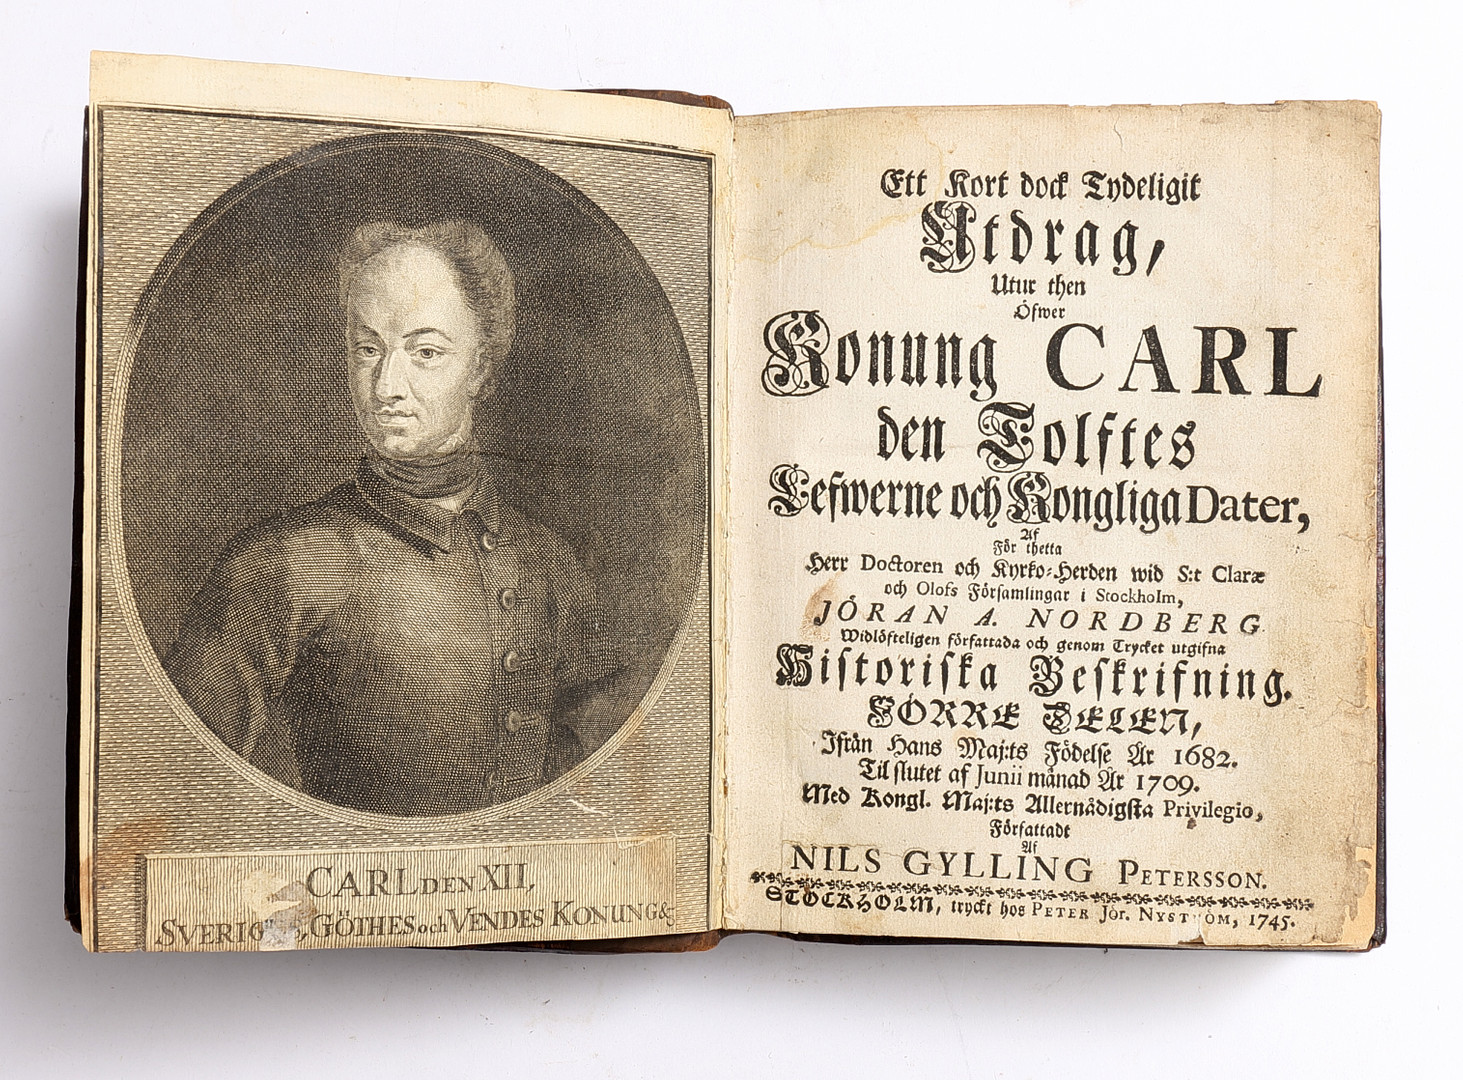 CARL DEN XII,
SVERIG GÖTHES och VENDES KONUNG &c
Ett Kort dock Tydeligit
Utdrag,
Utur then
Öfwer
Konung CARL
den Tolftes
Lefwerne och Kongliga Dater,
Af
För thetta
Herr Doctoren och Kyrko-Herden wid S:t Claræ
och Olofs Församlingar i Stockholm,
JÖRAN A. NORDBERG
Widlöfteligen författada och genom Trycket utgifna
Historiska Beskrifning.
FÖRRE DELEN,
Ifrån Hans Maj:ts Födelse År 1682.
Til slutet af Junii månad År 1709.
Med Kongl. Maj:ts Allernådigsta Privilegio,
Författadt
Af
NILS GYLLING PETERSSON.
STOCKHOLM, tryckt hos PETER JÖR. NYSTRÖM, 1745.